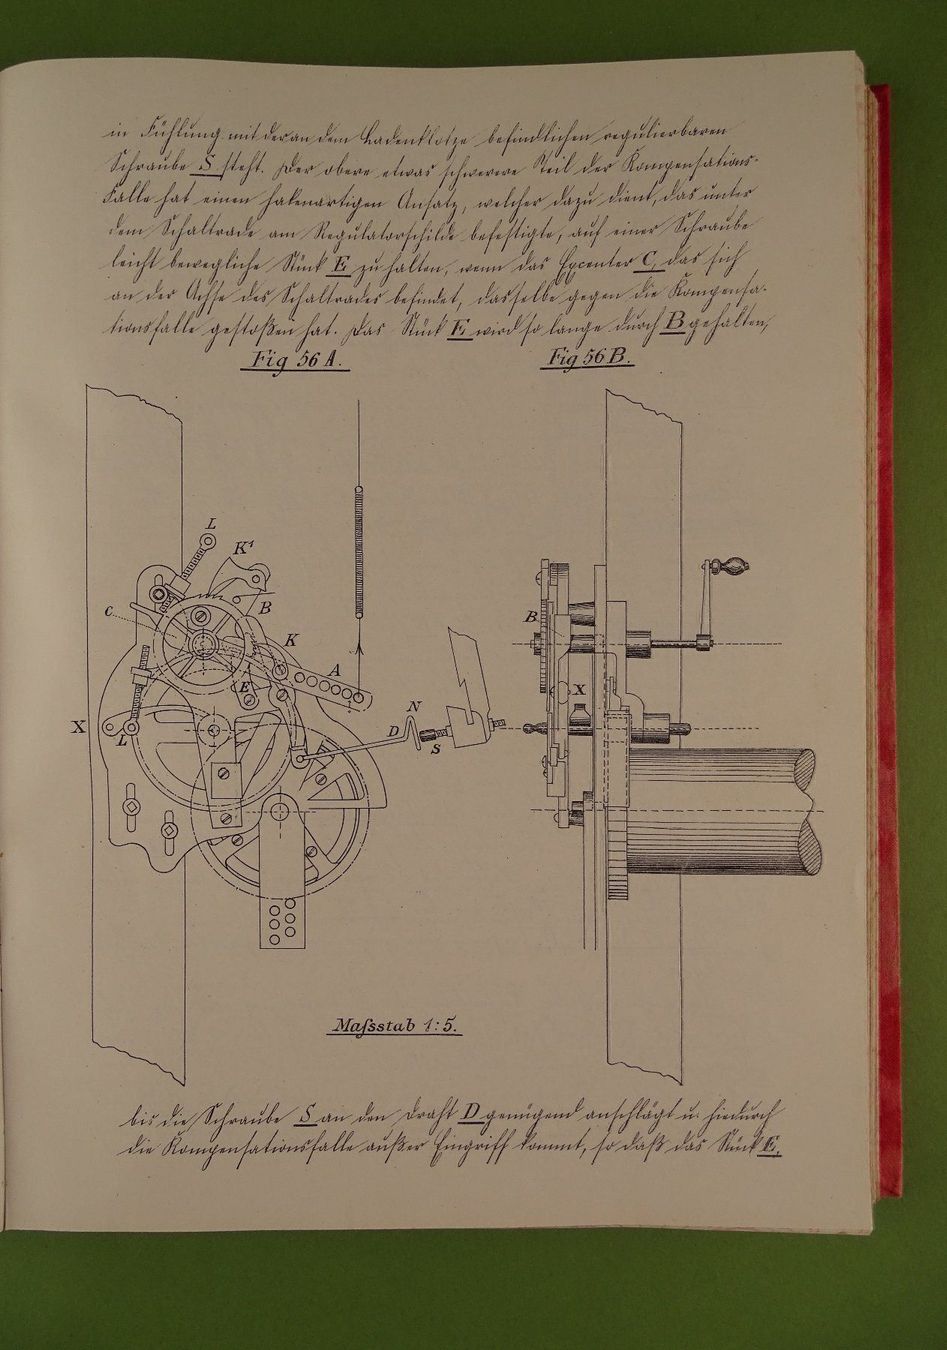 in Fühlung mit der an dem Ladenklotze befindlichen regulierbaren
Schraube S steht. Der obere etwas schwerere Teil der Kompensations-
Falle hat einen hakenartigen Ansatz, welcher dazu dient, das unter
dem Schaltrade am Regulatorschilde befestigte, auf einer Schraube
leicht bewegliche Stück E zu halten, wenn das Excenter C, das sich
an der Achse des Schaltrades befindet, dasselbe gegen die Kompensa-
tionsfalle gestoßen hat. Das Stück E wird so lange durch B gehalten,
Fig 56 A. Fig 56 B.
L
K¹
C
B
K
A
E
X
L
D
N
S
B
X
Maſsstab 1:5.
bis die Schraube S an den Draht D genügend anschlägt u. hiedurch
die Kompensationsfalle außer Eingriff kommt, so daß das Stück E,